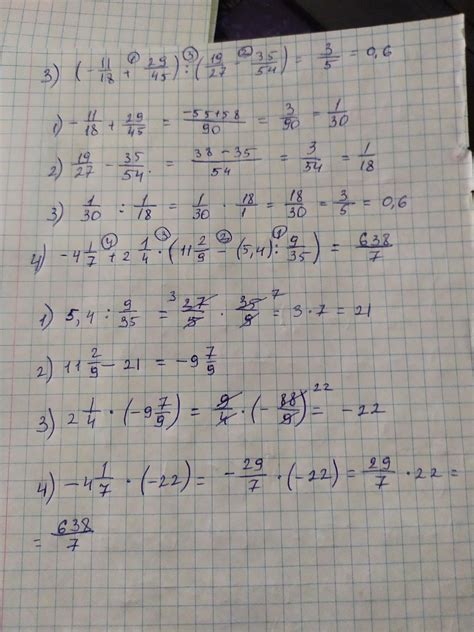 3) (-11/18 ①+ 29/45) ③: (19/27 ②- 35/54) = 3/5 = 0,6
1) -11/18 + 29/45 = -55+58/90 = 3/90 = 1/30
2) 19/27 - 35/54. = 38-35/54 = 3/54 = 1/18
3) 1/30 : 1/18 = 1/30 · 18/1 = 18/30 = 3/5 = 0,6
4) -4 1/7 ④+ 2 1/4 ③· (11 2/9 ②- (5,4) ①: 9/35) = 638/7
1) 5,4 : 9/35 = 3 27/5 · 35/9 7 = 3·7 = 21
2) 11 2/9 - 21 = -9 7/9
3) 2 1/4 · (-9 7/9) = 9/4 · (-88/9) 22 = -22
4) -4 1/7 · (-22) = -29/7 · (-22) = 29/7 · 22 =
= 638/7